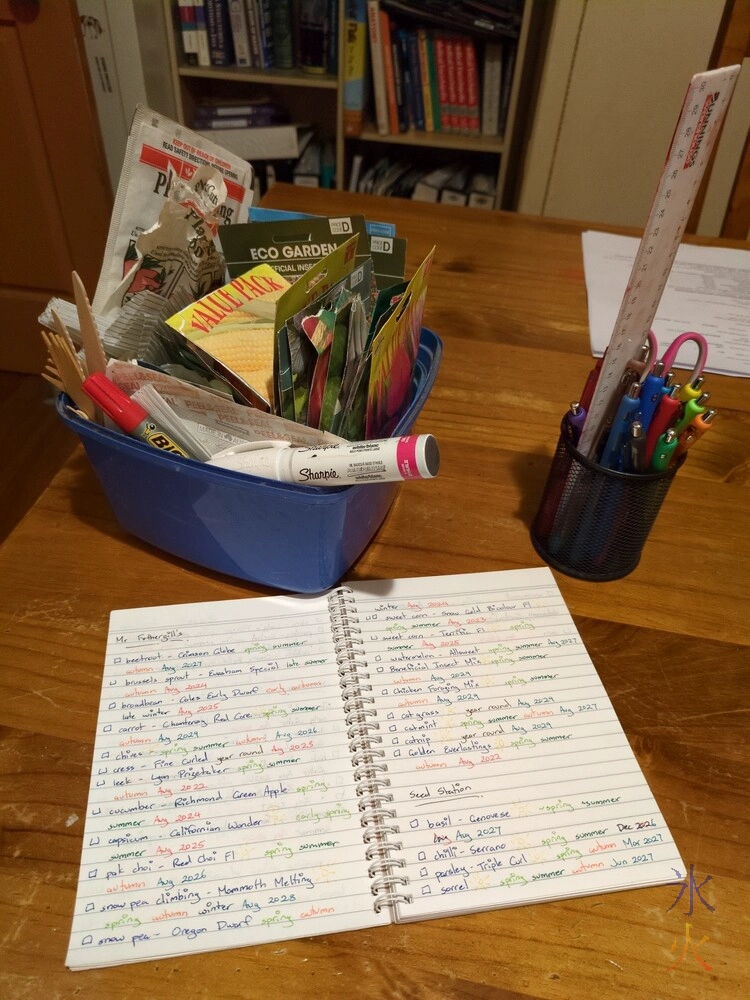 KEEP OUT OF REACH OF CHILDREN
READ SAFETY DIRECTIONS BEFORE OPENING
ECO GARDEN
VALUE PACK
D
D
BIC
Sharpie
Mr Fothergill's
beetroot - Crimson Globe spring summer
autumn Aug 2027
brussels sprout - Evesham Special late summer
autumn Aug 2024
broadbean - Coles Early Dwarf early autumn
late winter Aug 2025
carrot - Chantenay Red Core spring summer
autumn Aug 2029
chives - spring summer autumn Aug 2026
cress - Fine Curled year round Aug 2023
leek - Lyon Prizetaker spring summer
autumn Aug 2022
cucumber - Richmond Green Apple spring
summer Aug 2029
capsicum - Californian Wonder early spring
summer Aug 2025
pak choi - Red Choi F1 spring summer
autumn Aug 2026
snow pea climbing - Mammoth Melting
spring autumn winter Aug 2023
snow pea - Oregon Dwarf spring autumn
winter Aug 2024
sweet corn - Snow Gold Bicolour F1
summer Aug 2023
sweet corn - Terrific F1 spring
summer Aug 2025
watermelon - Allsweet spring summer Aug 2027
Beneficial Insect Mix spring summer
Aug 2029
Chicken Foraging Mix spring summer
autumn Aug 2029
cat grass year round Aug 2029
catmint spring summer autumn Aug 2027
catnip year round Aug 2029
Golden Everlastings spring summer
autumn Aug 2022
Seed Station
basil - Genovese spring summer
Aug 2027
chilli - Serrano spring summer Dec 2026
parsley - Triple Curl spring summer autumn Mar 2027
sorrel spring summer autumn Jun 2027
水
火